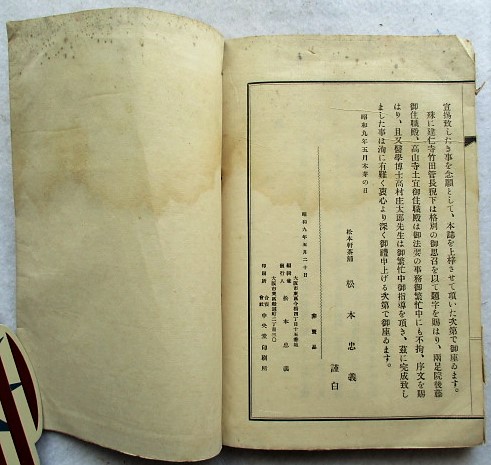 宣揚致したき事を念願として、本誌を上梓させて頂いた次第で御座ゐます。
殊に建仁寺竹田管長猊下は格別の御思召を以て題字を賜はり、兩足院後藤
御住職殿、高山寺土宜御住職殿は御法要の事務御繁忙中にも不拘、序文を賜
はり、且又醫學博士高村庄太郎先生は御繁忙中御指導を頂き、茲に完成致し
ました事は洵に有難く衷心より深く御禮申上げる次第で御座ゐます。
昭和九年五月本葬の日
松本軒茶舗 松本忠義 謹白
非賣品
昭和九年五月二十日
大阪市東區今橋四丁目十五番地
編輯兼發行人 松本忠義
印刷所 合資會社 中央堂印刷所